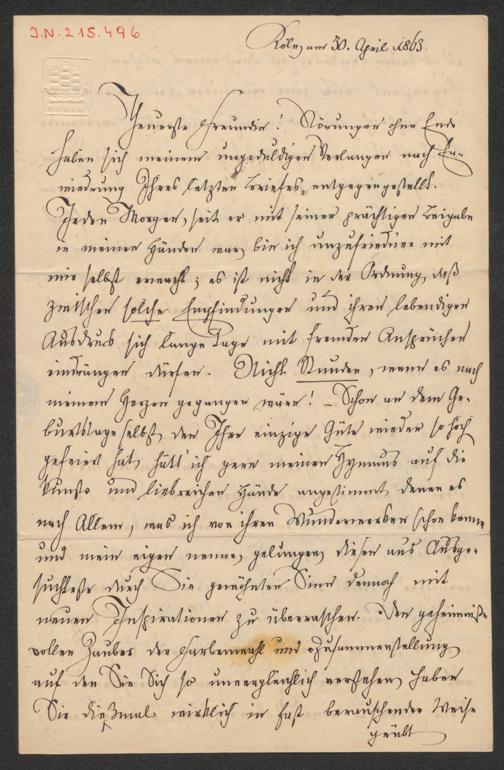 I.N. 215.496
Köln, am 30. April 1863.
Theuerste Freundin! Störungen ohne Ende
haben sich meinem ungeduldigen Verlangen nach Er-
wiedrung Ihres letzten Briefes, entgegengestellt.
Jeden Morgen, seit er mit seiner prächtigen Beigabe
in meinen Händen war, bin ich unzufriedner mit
mir selbst erwacht; es ist nicht in der Ordnung, daß
zwischen solche Empfindungen und ihren lebendigen
Ausdruck sich lange Tage mit fremden Ansprüchen
eindrängen dürfen. Nicht Stunden, wenn es nach
meinem Herzen gegangen wäre! – Schon an dem Ge-
burtstage selbst, den Ihre einzige Güte wieder so hoch
gefeiert hat, hätt' ich gern meinen Hymnus auf die
Kunst- und liebreichen Hände angestimmt, denen es
nach Allem, was ich von ihren Wunderwerken schon kenne
und mein eigen nenne, gelungen, diesen aus Ausge-
suchteste durch Sie gewöhnten Sinn dennoch mit
neuen Inspirationen zu überraschen. Den geheimniß-
vollen Zauber der Farbenwahl und Zusammenstellung,
auf den Sie Sich so unvergleichlich verstehen, haben
Sie dießmal wirklich in fast berauschender Weise
geübt